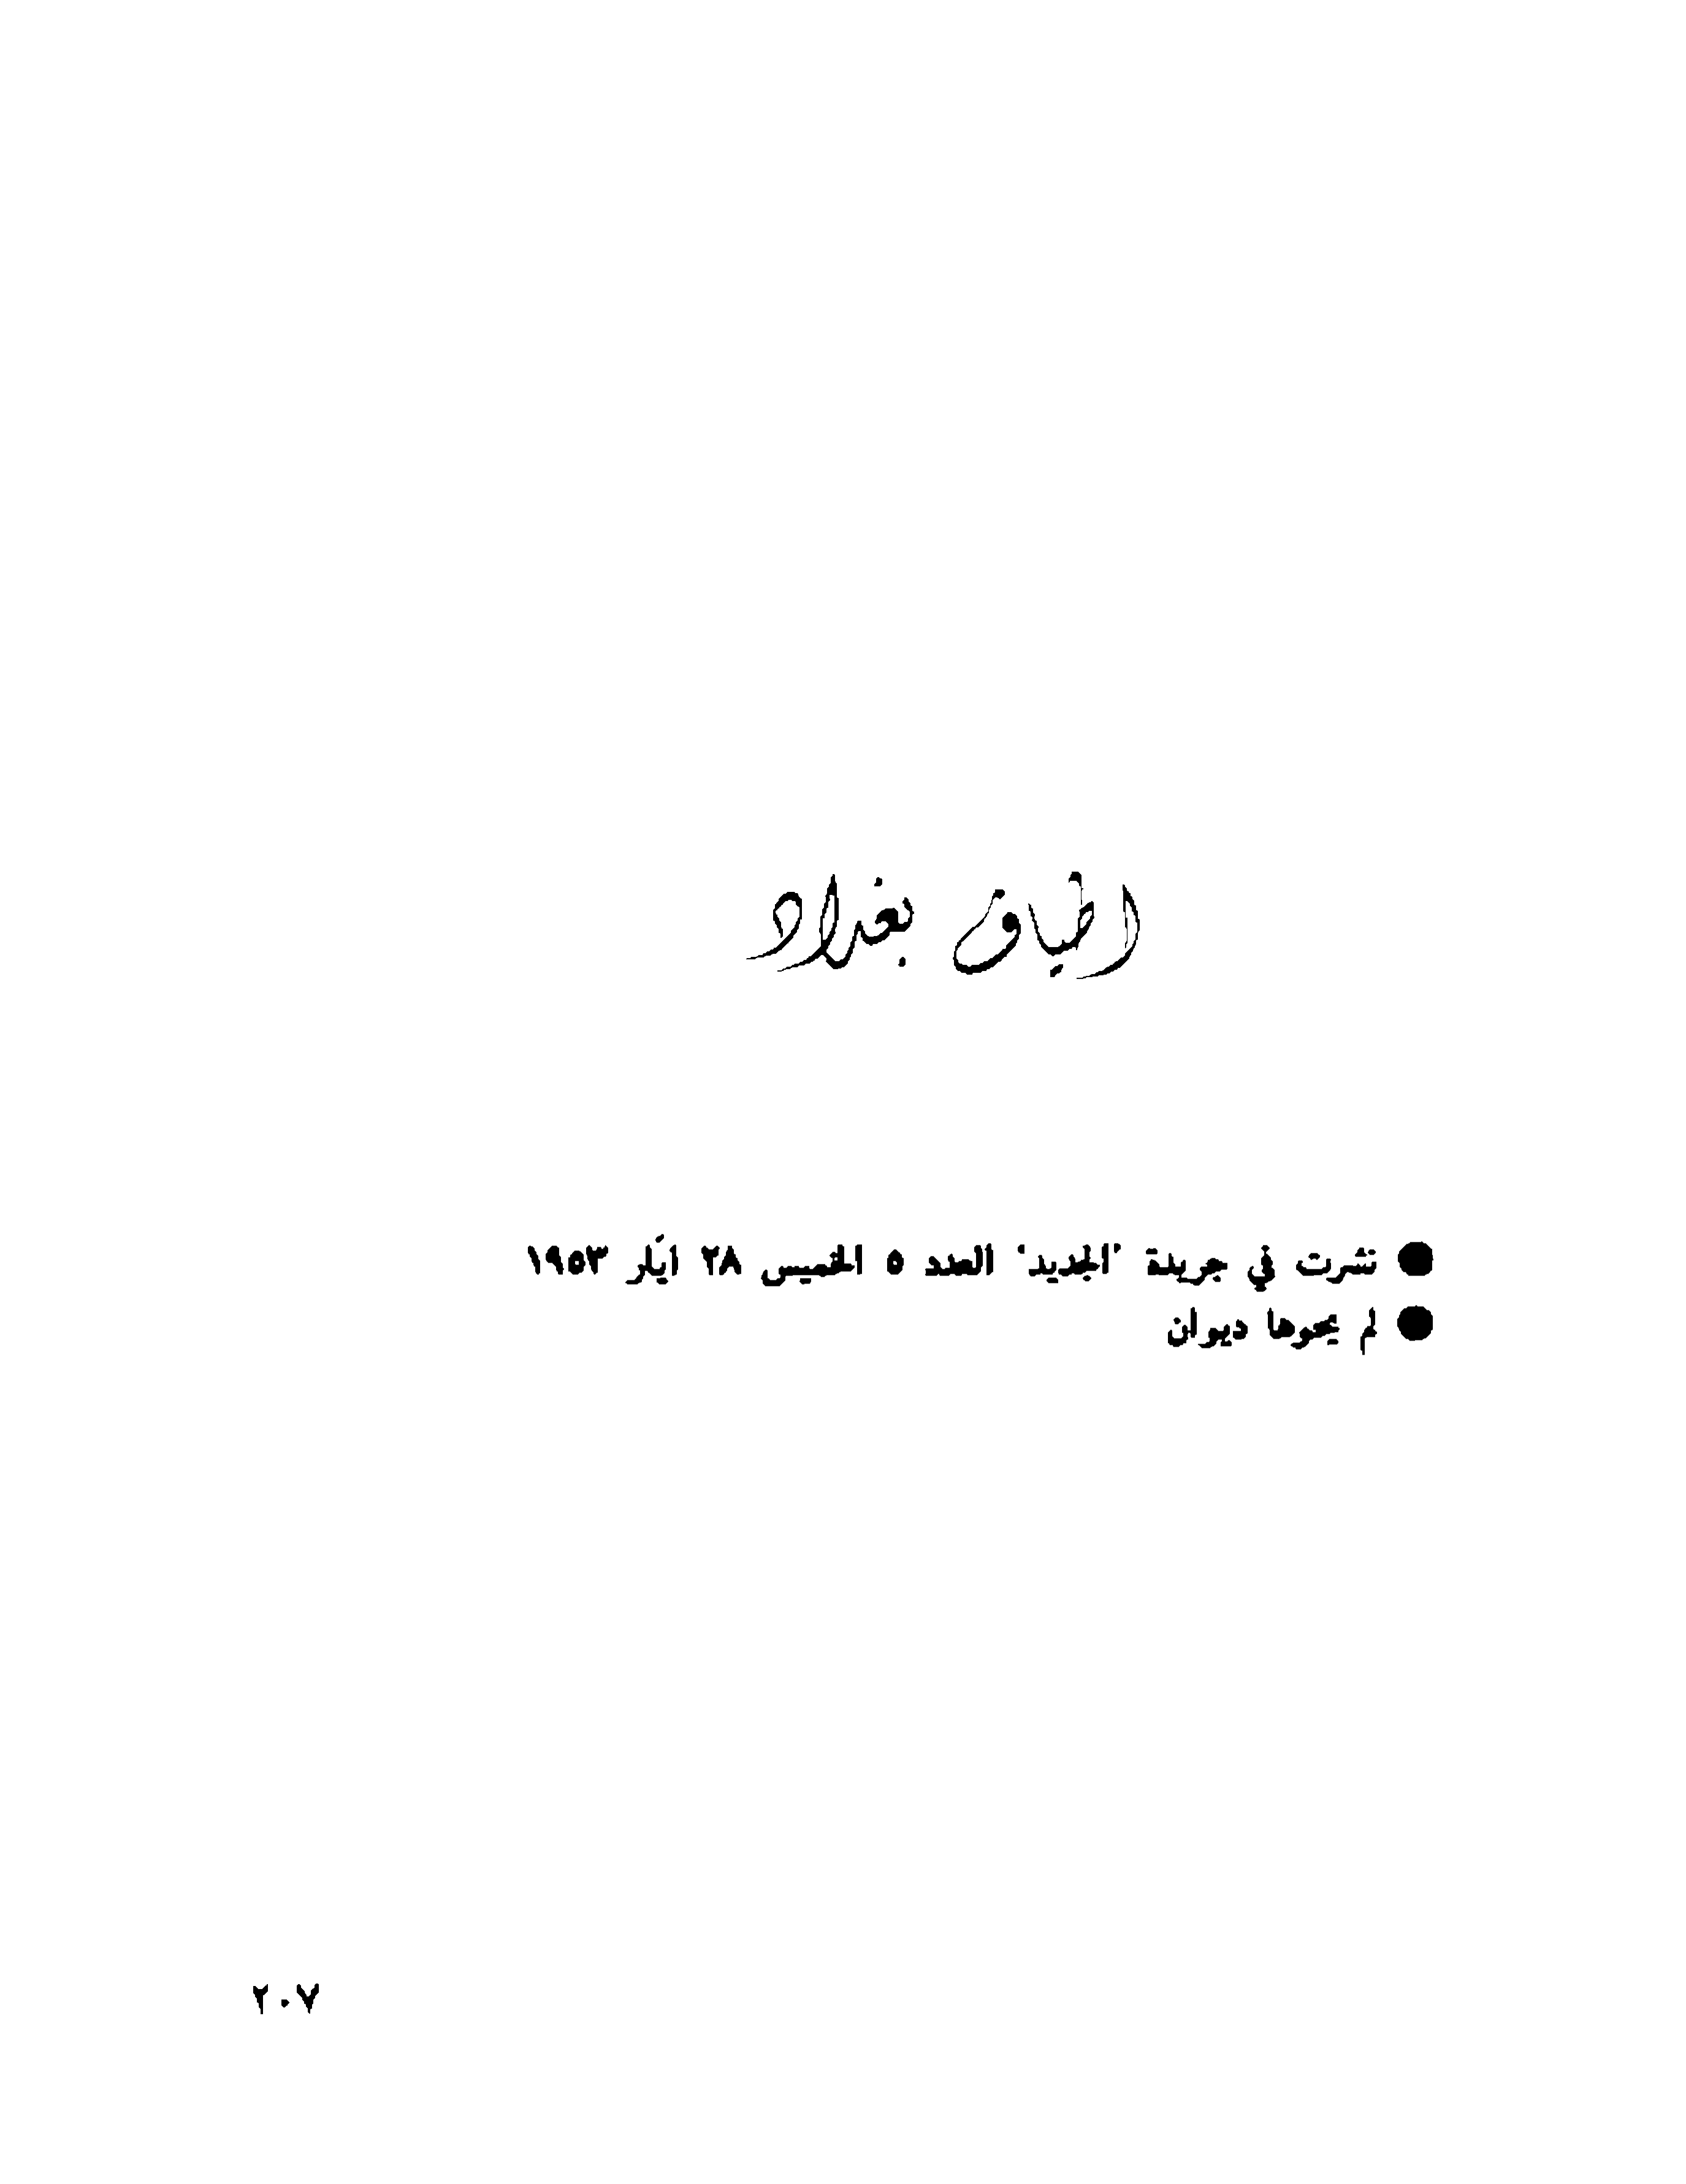 اطياف بغداد
● نشرت في جريدة "الجديد" العدد ٥ الخميس ٢٨ ايّار ١٩٥٣
● لم يحوها ديوان
٢٠٧